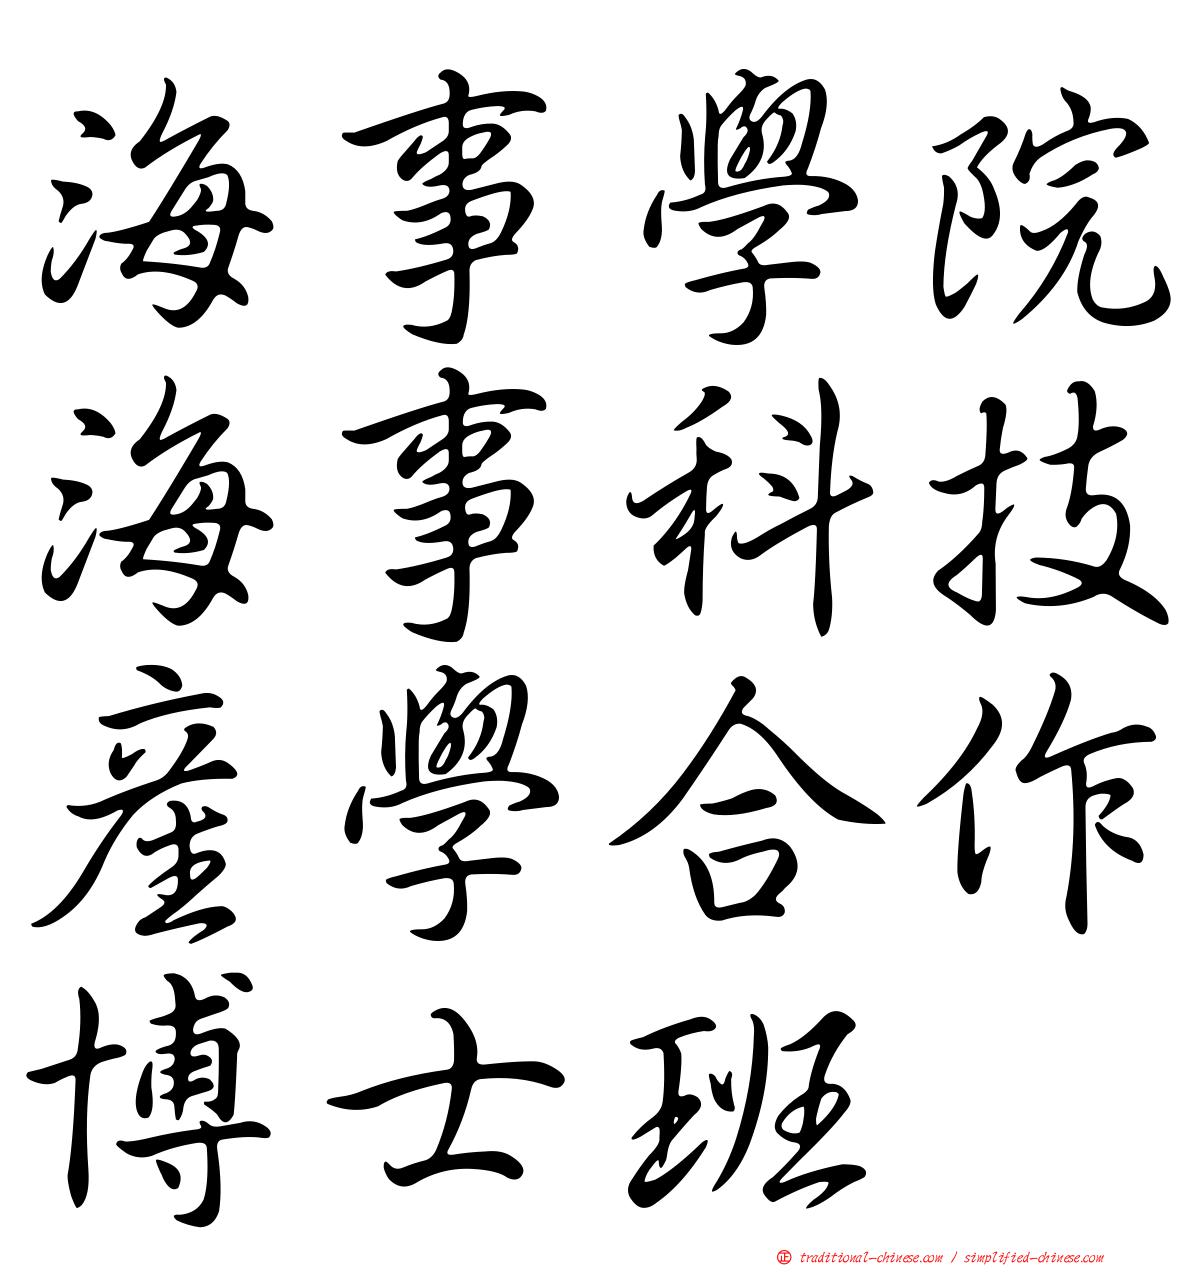 海事學院
海事科技
產學合作
博士班
㊣ traditional-chinese.com / simplified-chinese.com